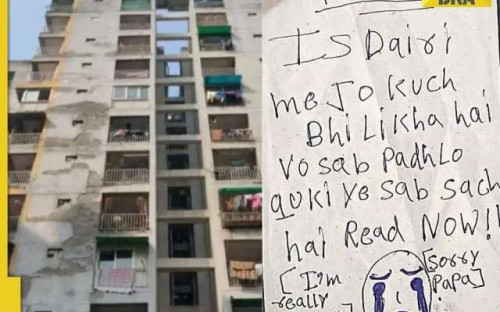 DNA
Is Dairi
me Jo Kuch
Bhi Likha hai
Vo sab Padhlo
quki ye sab sach
hai Read NOW!!
[I'm really
[sorry Papa]